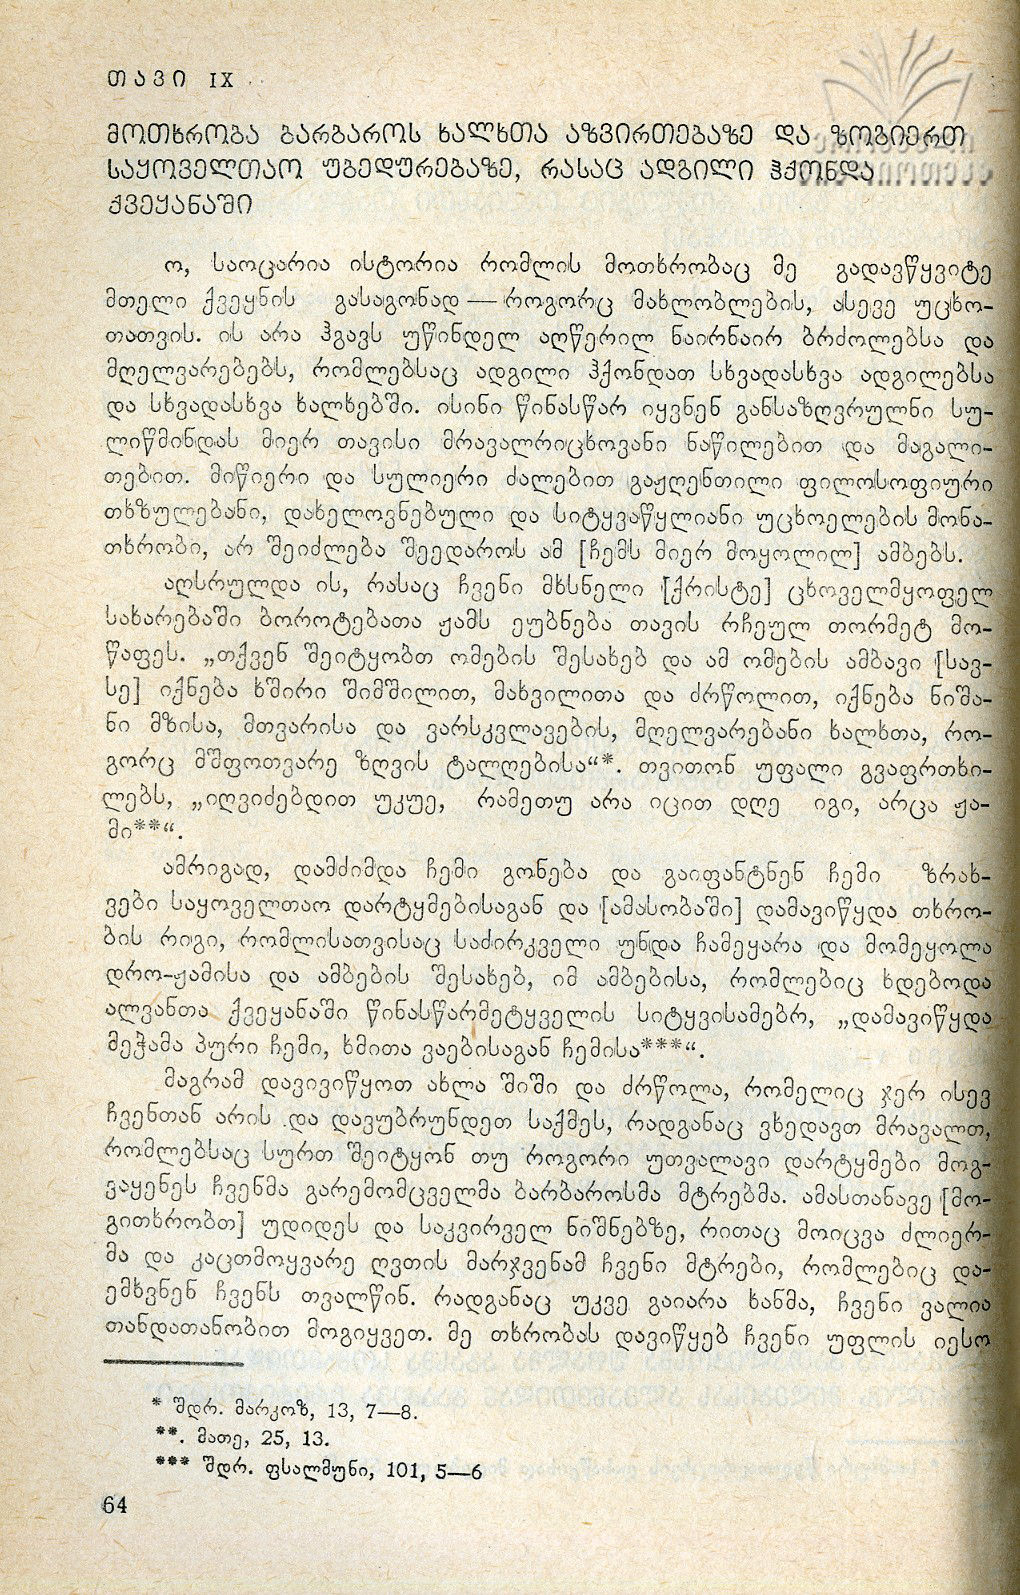 თავი IX
მოთხრობა ბარბაროს ხალხთა აზვირთებაზე და ზოგიერთ
საყოველთაო უბედურებაზე, რასაც ადგილი ჰქონდა
ქვეყანაში
ო, საოცარია ისტორია რომლის მოთხრობაც მე გადავწყვიტე
მთელი ქვეყნის გასაგონად — როგორც მახლობლების, ასევე უცხო-
თათვის. ის არა ჰგავს უწინდელ აღწერილ ნაირნაირ ბრძოლებსა და
მღელვარებებს, რომლებსაც ადგილი ჰქონდათ სხვადასხვა ადგილებსა
და სხვადასხვა ხალხებში. ისინი წინასწარ იყვნენ განსაზღვრულნი სუ-
ლიწმინდას მიერ თავისი მრავალრიცხოვანი ნაწილებით და მაგალი-
თებით. მიწიერი და სულიერი ძალებით გაჟღენთილი ფილოსოფიური
თხზულებანი, დახელოვნებული და სიტყვაწყლიანი უცხოელების მონა-
თხრობი, არ შეიძლება შეედაროს ამ [ჩემს მიერ მოყოლილ] ამბებს.
აღსრულდა ის, რასაც ჩვენი მხსნელი [ქრისტე] ცხოველმყოფელ
სახარებაში ბოროტებათა ჟამს ეუბნება თავის რჩეულ თორმეტ მო-
წაფეს. „თქვენ შეიტყობთ ომების შესახებ და ამ ომების ამბავი [სავ-
სე] იქნება ხშირი შიმშილით, მახვილითა და ძრწოლით, იქნება ნიშა-
ნი მზისა, მთვარისა და ვარსკვლავების, მღელვარებანი ხალხთა, რო-
გორც მშფოთვარე ზღვის ტალღებისა“*. თვითონ უფალი გვაფრთხი-
ლებს, „იღვიძებდით უკუე, რამეთუ არა იცით დღე იგი, არცა ჟა-
მი**“.
ამრიგად, დამძიმდა ჩემი გონება და გაიფანტნენ ჩემი ზრახ-
ვები საყოველთაო დარტყმებისაგან და [ამასობაში] დამავიწყდა თხრო-
ბის რიგი, რომლისათვისაც საძირკველი უნდა ჩამეყარა და მომეყოლა
დრო-ჟამისა და ამბების შესახებ, იმ ამბებისა, რომლებიც ხდებოდა
ალვანთა ქვეყანაში წინასწარმეტყველის სიტყვისამებრ, „დამავიწყდა
მეჭამა პური ჩემი, ხმითა ვაებისაგან ჩემისა***“.
მაგრამ დავივიწყოთ ახლა შიში და ძრწოლა, რომელიც ჯერ ისევ
ჩვენთან არის და დავუბრუნდეთ საქმეს, რადგანაც ვხედავთ მრავალთ,
რომლებსაც სურთ შეიტყონ თუ როგორი უთვალავი დარტყმები მოგ-
ვაყენეს ჩვენმა გარემომცველმა ბარბაროსმა მტრებმა. ამასთანავე [მო-
გითხრობთ] უდიდეს და საკვირველ ნიშნებზე, რითაც მოიცვა ძლიერ-
მა და კაცთმოყვარე ღვთის მარჯვენამ ჩვენი მტრები, რომლებიც და-
ემხვნენ ჩვენს თვალწინ. რადგანაც უკვე გაიარა ხანმა, ჩვენი ვალია
თანდათანობით მოგიყვეთ. მე თხრობას დავიწყებ ჩვენი უფლის იესო
* შდრ. მარკოზ, 13, 7—8.
**. მათე, 25, 13.
*** შდრ. ფსალმუნი, 101, 5—6
64